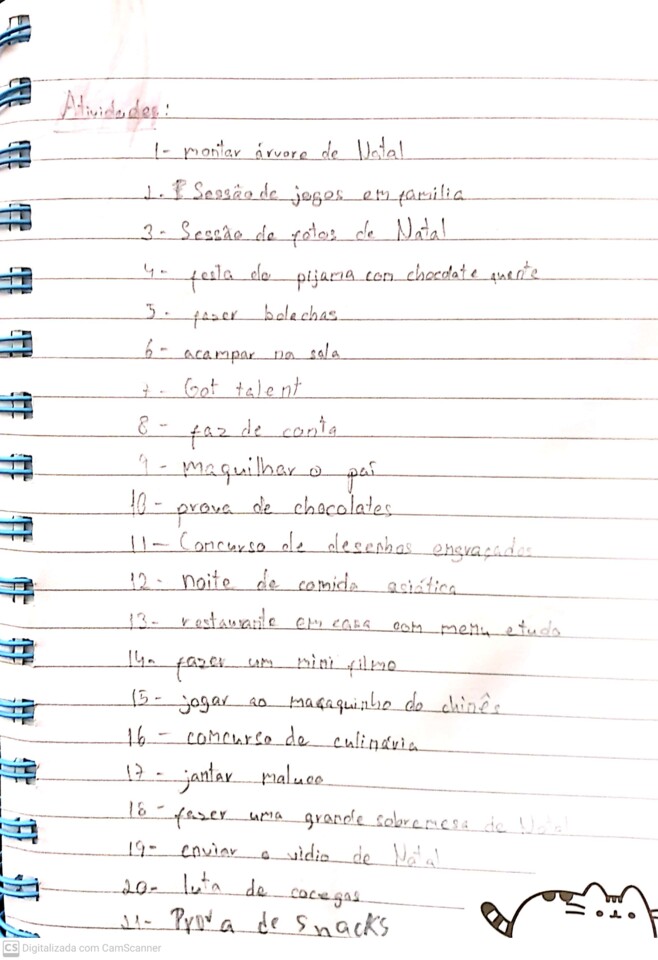 Atividades:
1- montar árvore de Natal
2. Sessão de jogos em família
3- Sessão de fotos de Natal
4- festa do pijama com chocolate quente
5- fazer bolachas
6- acampar na sala
7- Got talent
8- faz de conta
9- maquilhar o pai
10- prova de chocolates
11- Concurso de desenhos engraçados
12- noite de comida asiática
13- restaurante em casa com menu etudo
14- fazer um mini filme
15- jogar ao macaquinho do chinês
16- comcurso de culinária
17- jantar maluco
18- fazer uma grande sobremesa de Natal
19- enviar o vidio de Natal
20- luta de cocegas
21- Prova de snacks
CS Digitalizada com CamScanner